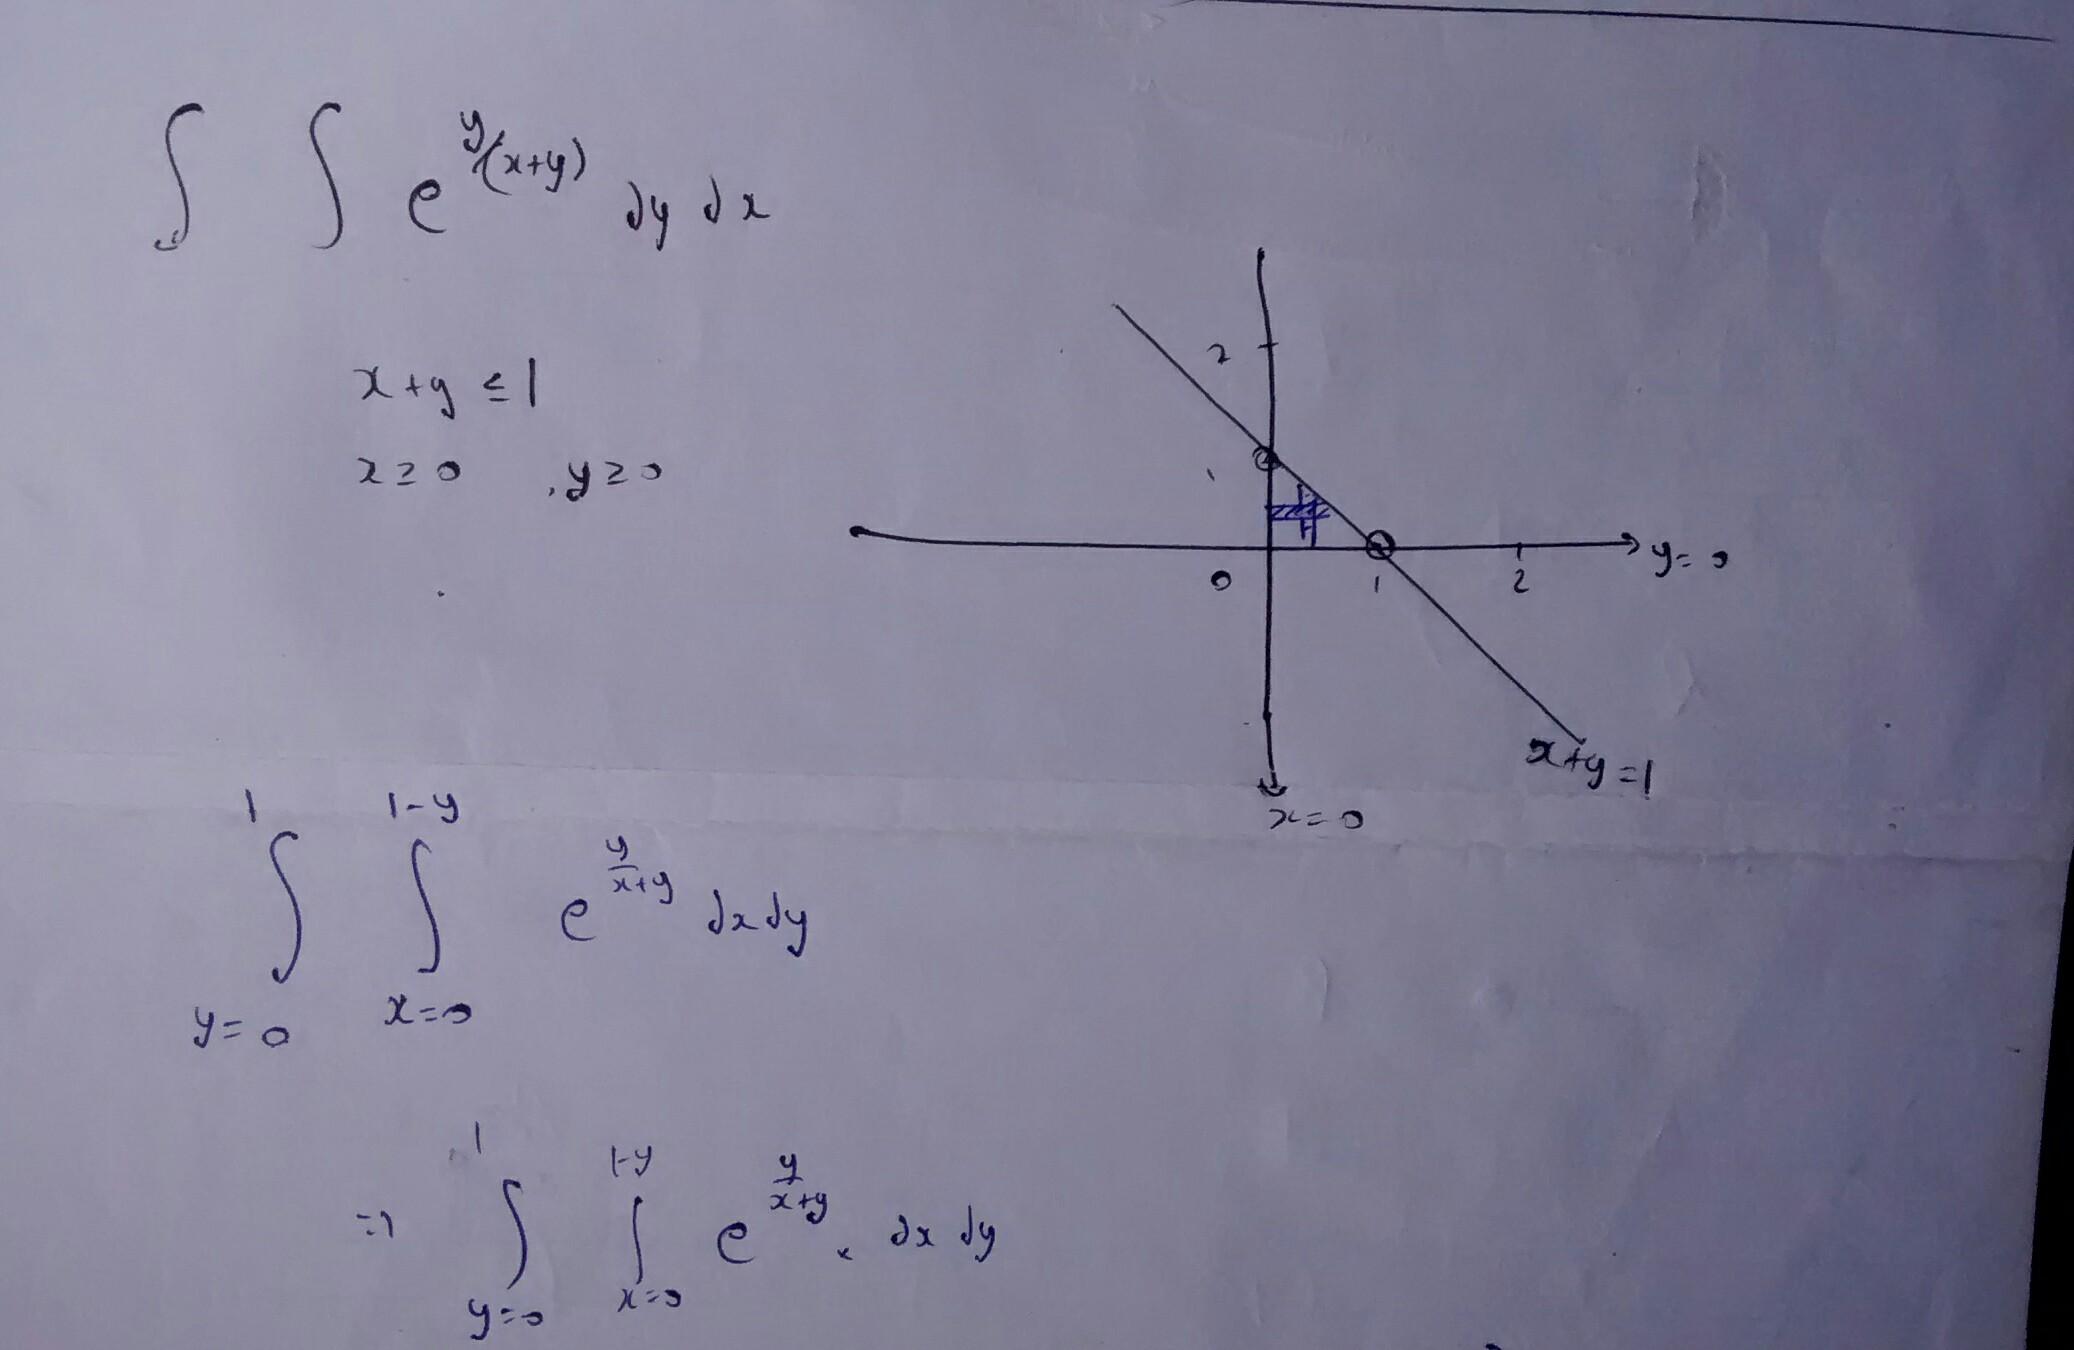 ∫ ∫ e^{y/(x+y)} dy dx
x+y ≤ 1
x ≥ 0 , y ≥ 0
2
1
0 1 2 y=0
x+y=1
x=0
∫_{y=0}^{1} ∫_{x=0}^{1-y} e^{\frac{y}{x+y}} dx dy
⇒ ∫_{y=0}^{1} ∫_{x=0}^{1-y} e^{\frac{y}{x+y}} . dx dy